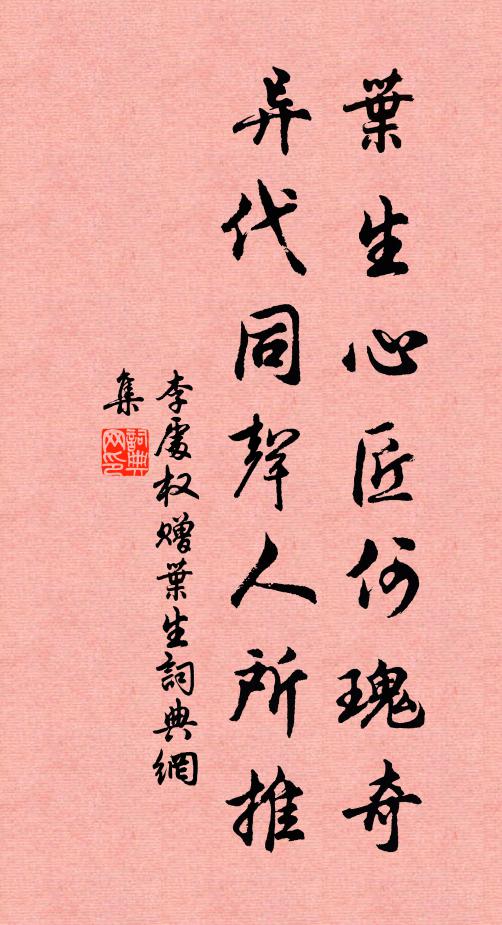 葉生心匠何瑰奇
异代同聲人所推
李處权贈葉生詞典網
集
詞典网印